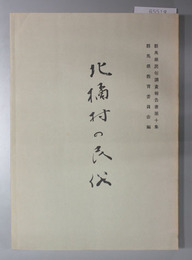 群馬県民俗調査報告書第十集
群馬県教育委員会編
北橘村の民俗